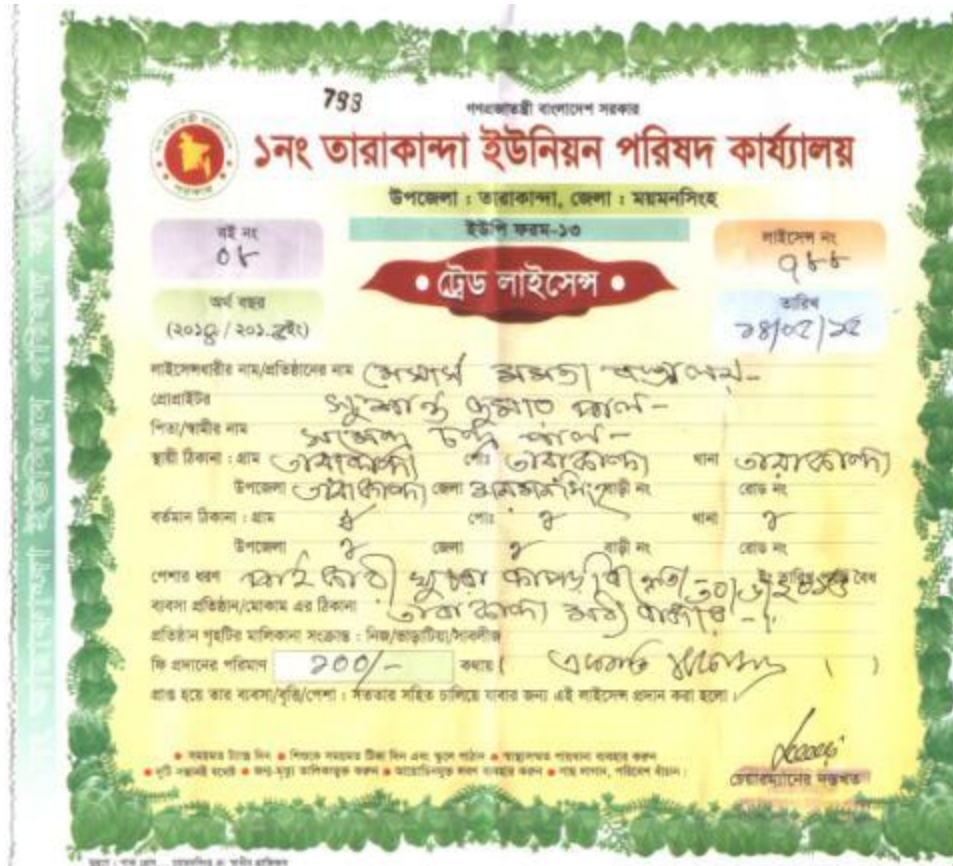 788
গণপ্রজাতন্ত্রী বাংলাদেশ সরকার
১নং তারাকান্দা ইউনিয়ন পরিষদ কার্য্যালয়
উপজেলা : তারাকান্দা, জেলা : ময়মনসিংহ
ইউপি ফরম-১৩
বই নং
০৮
লাইসেন্স নং
৭৮৮
• ট্রেড লাইসেন্স •
অর্থ বছর
তারিখ
লাইসেন্সধারীর নাম/প্রতিষ্ঠানের নাম মেসার্স মমতা বস্ত্রালয়-
প্রোপ্রাইটর সুশান্ত কুমার পাল-
পিতা/স্বামীর নাম চন্দ্র পাল-
স্থায়ী ঠিকানা : গ্রাম তারাকান্দা পোঃ তারাকান্দা থানা তারাকান্দা
উপজেলা তারাকান্দা জেলা ময়মনসিংহ বাড়ী নং রোড নং
বর্তমান ঠিকানা : গ্রাম ঐ পোঃ ঐ থানা ঐ
উপজেলা ঐ জেলা ঐ বাড়ী নং রোড নং
পেশার ধরণ পাইকারী খুচরা কাপড় ইং তারিখ বৈধ
ব্যবসা প্রতিষ্ঠান/মোকাম এর ঠিকানা তারাকান্দা বাজার
প্রতিষ্ঠান গৃহটির মালিকানা সংক্রান্ত : নিজ/ভাড়াটিয়া/সাবলীজ
ফি প্রদানের পরিমাণ ১০০/- কথায় ( একশত )
প্রাপ্ত হয়ে তার ব্যবসা/বৃত্তি/পেশা : সততার সহিত চালিয়ে যাবার জন্য এই লাইসেন্স প্রদান করা হলো।
• সময়মত ট্যাক্স দিন • শিশুকে সময়মত টিকা দিন এবং স্কুলে পাঠান • স্বাস্থ্যসম্মত পায়খানা ব্যবহার করুন
• দুটি সন্তানই যথেষ্ট • জন্ম-মৃত্যু তালিকাভুক্ত করুন • আয়োডিনযুক্ত লবণ ব্যবহার করুন • গাছ লাগান, পরিবেশ বাঁচান।
চেয়ারম্যানের দস্তখত